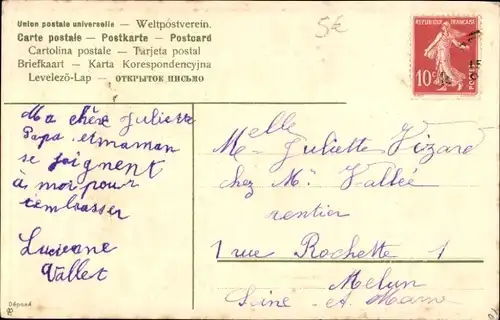 Union postale universelle — Weltpostverein.
Carte postale — Postkarte — Postcard
Cartolina postale — Tarjeta postal
Briefkaart — Karta Korespondencyjna
Levelező-Lap — ОТКРЫТОК ПИСЬМО
5€
REPUBLIQUE FRANÇAISE
10c POSTES
Ma chère Juliette
Papa et maman
se joignent
à moi pour
t'embrasser
Lucienne
Vallet
Melle
Juliette Vizard
chez Mr Vallée
rentier
1 rue Rochette 1
Melun
Seine-et-Marne
Déposé